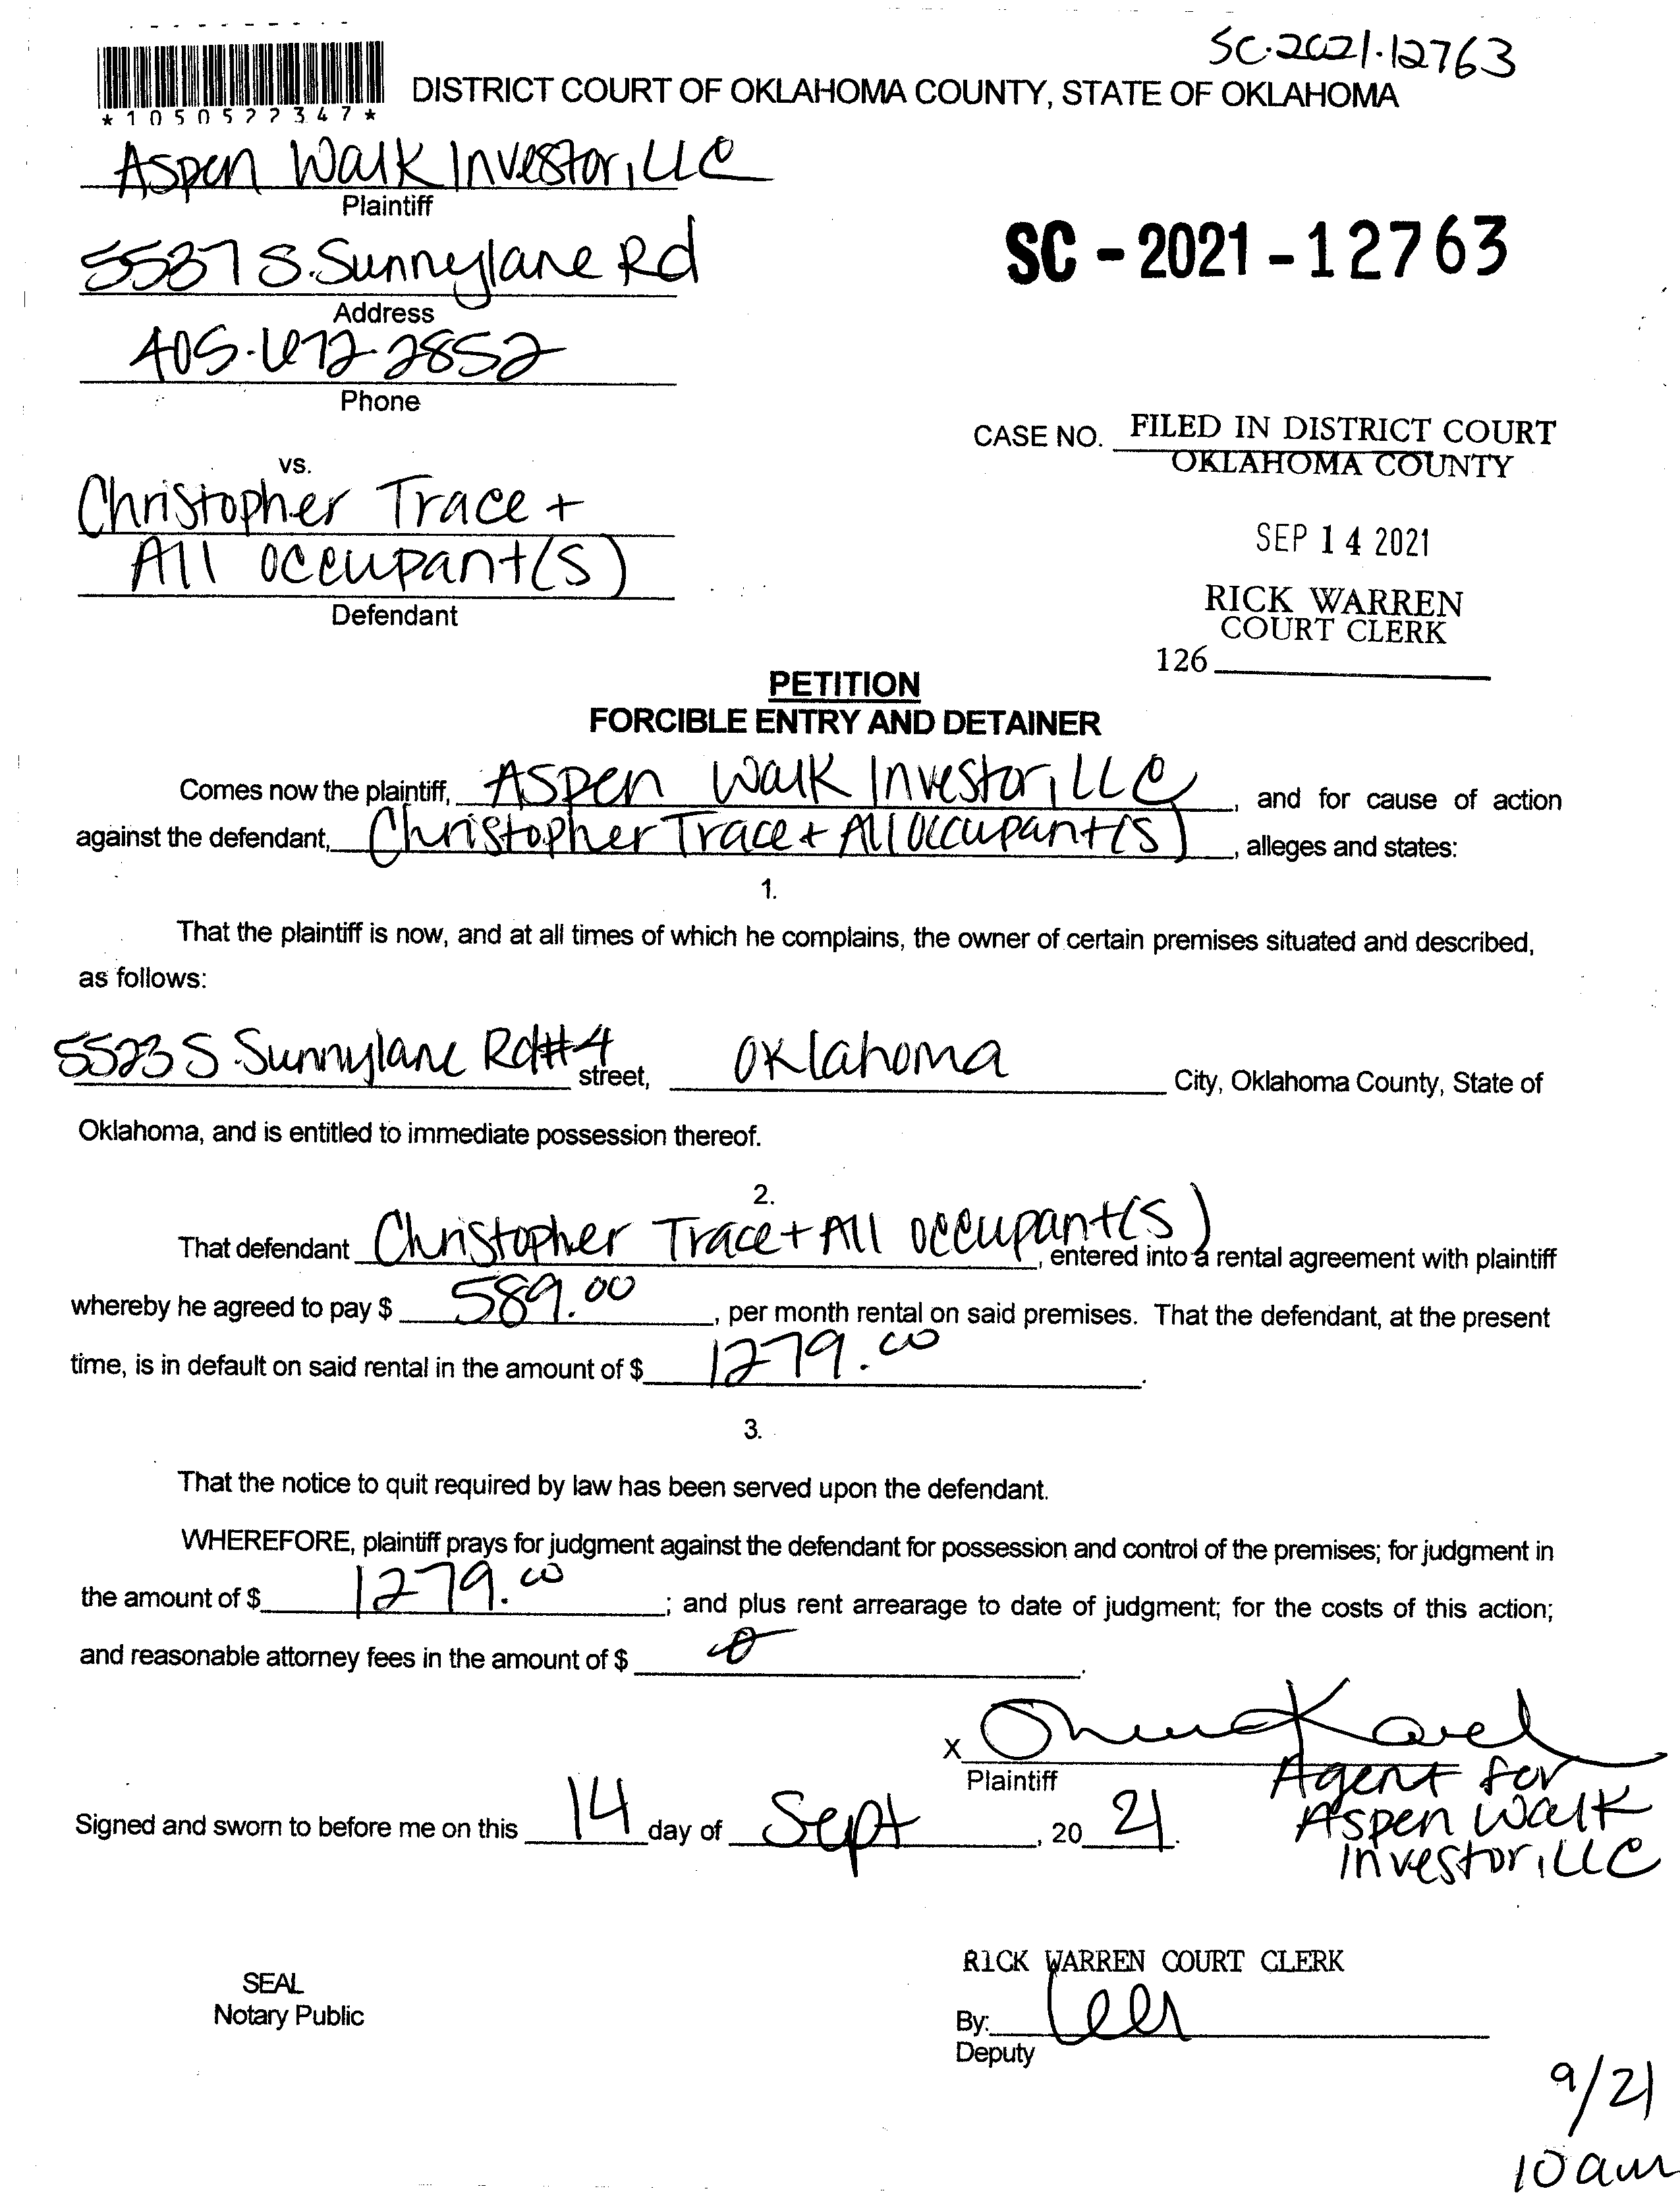 SC-2021-12763
*1050522347*
DISTRICT COURT OF OKLAHOMA COUNTY, STATE OF OKLAHOMA
Aspen Walk Investor, LLC
Plaintiff
5537 S. Sunnylane Rd
Address
405-672-2852
Phone
SC - 2021 - 12763
CASE NO. FILED IN DISTRICT COURT
OKLAHOMA COUNTY
SEP 14 2021
RICK WARREN
COURT CLERK
126
vs.
Christopher Trace +
All occupant(s)
Defendant
PETITION
FORCIBLE ENTRY AND DETAINER
Comes now the plaintiff, Aspen Walk Investor, LLC, and for cause of action
against the defendant, Christopher Trace + All Occupant(s), alleges and states:
1.
That the plaintiff is now, and at all times of which he complains, the owner of certain premises situated and described,
as follows:
5523 S Sunnylane Rd #4 street, Oklahoma City, Oklahoma County, State of
Oklahoma, and is entitled to immediate possession thereof.
2.
That defendant Christopher Trace + All occupant(s), entered into a rental agreement with plaintiff
whereby he agreed to pay $ 589.00, per month rental on said premises. That the defendant, at the present
time, is in default on said rental in the amount of $ 1279.00.
3.
That the notice to quit required by law has been served upon the defendant.
WHEREFORE, plaintiff prays for judgment against the defendant for possession and control of the premises; for judgment in
the amount of $ 1279.00; and plus rent arrearage to date of judgment; for the costs of this action;
and reasonable attorney fees in the amount of $ 0.
X
Plaintiff
Agent for
Aspen Walk
Investor, LLC
Signed and sworn to before me on this 14 day of Sept, 2021.
SEAL
Notary Public
RICK WARREN COURT CLERK
By:
Deputy
9/21
10 am